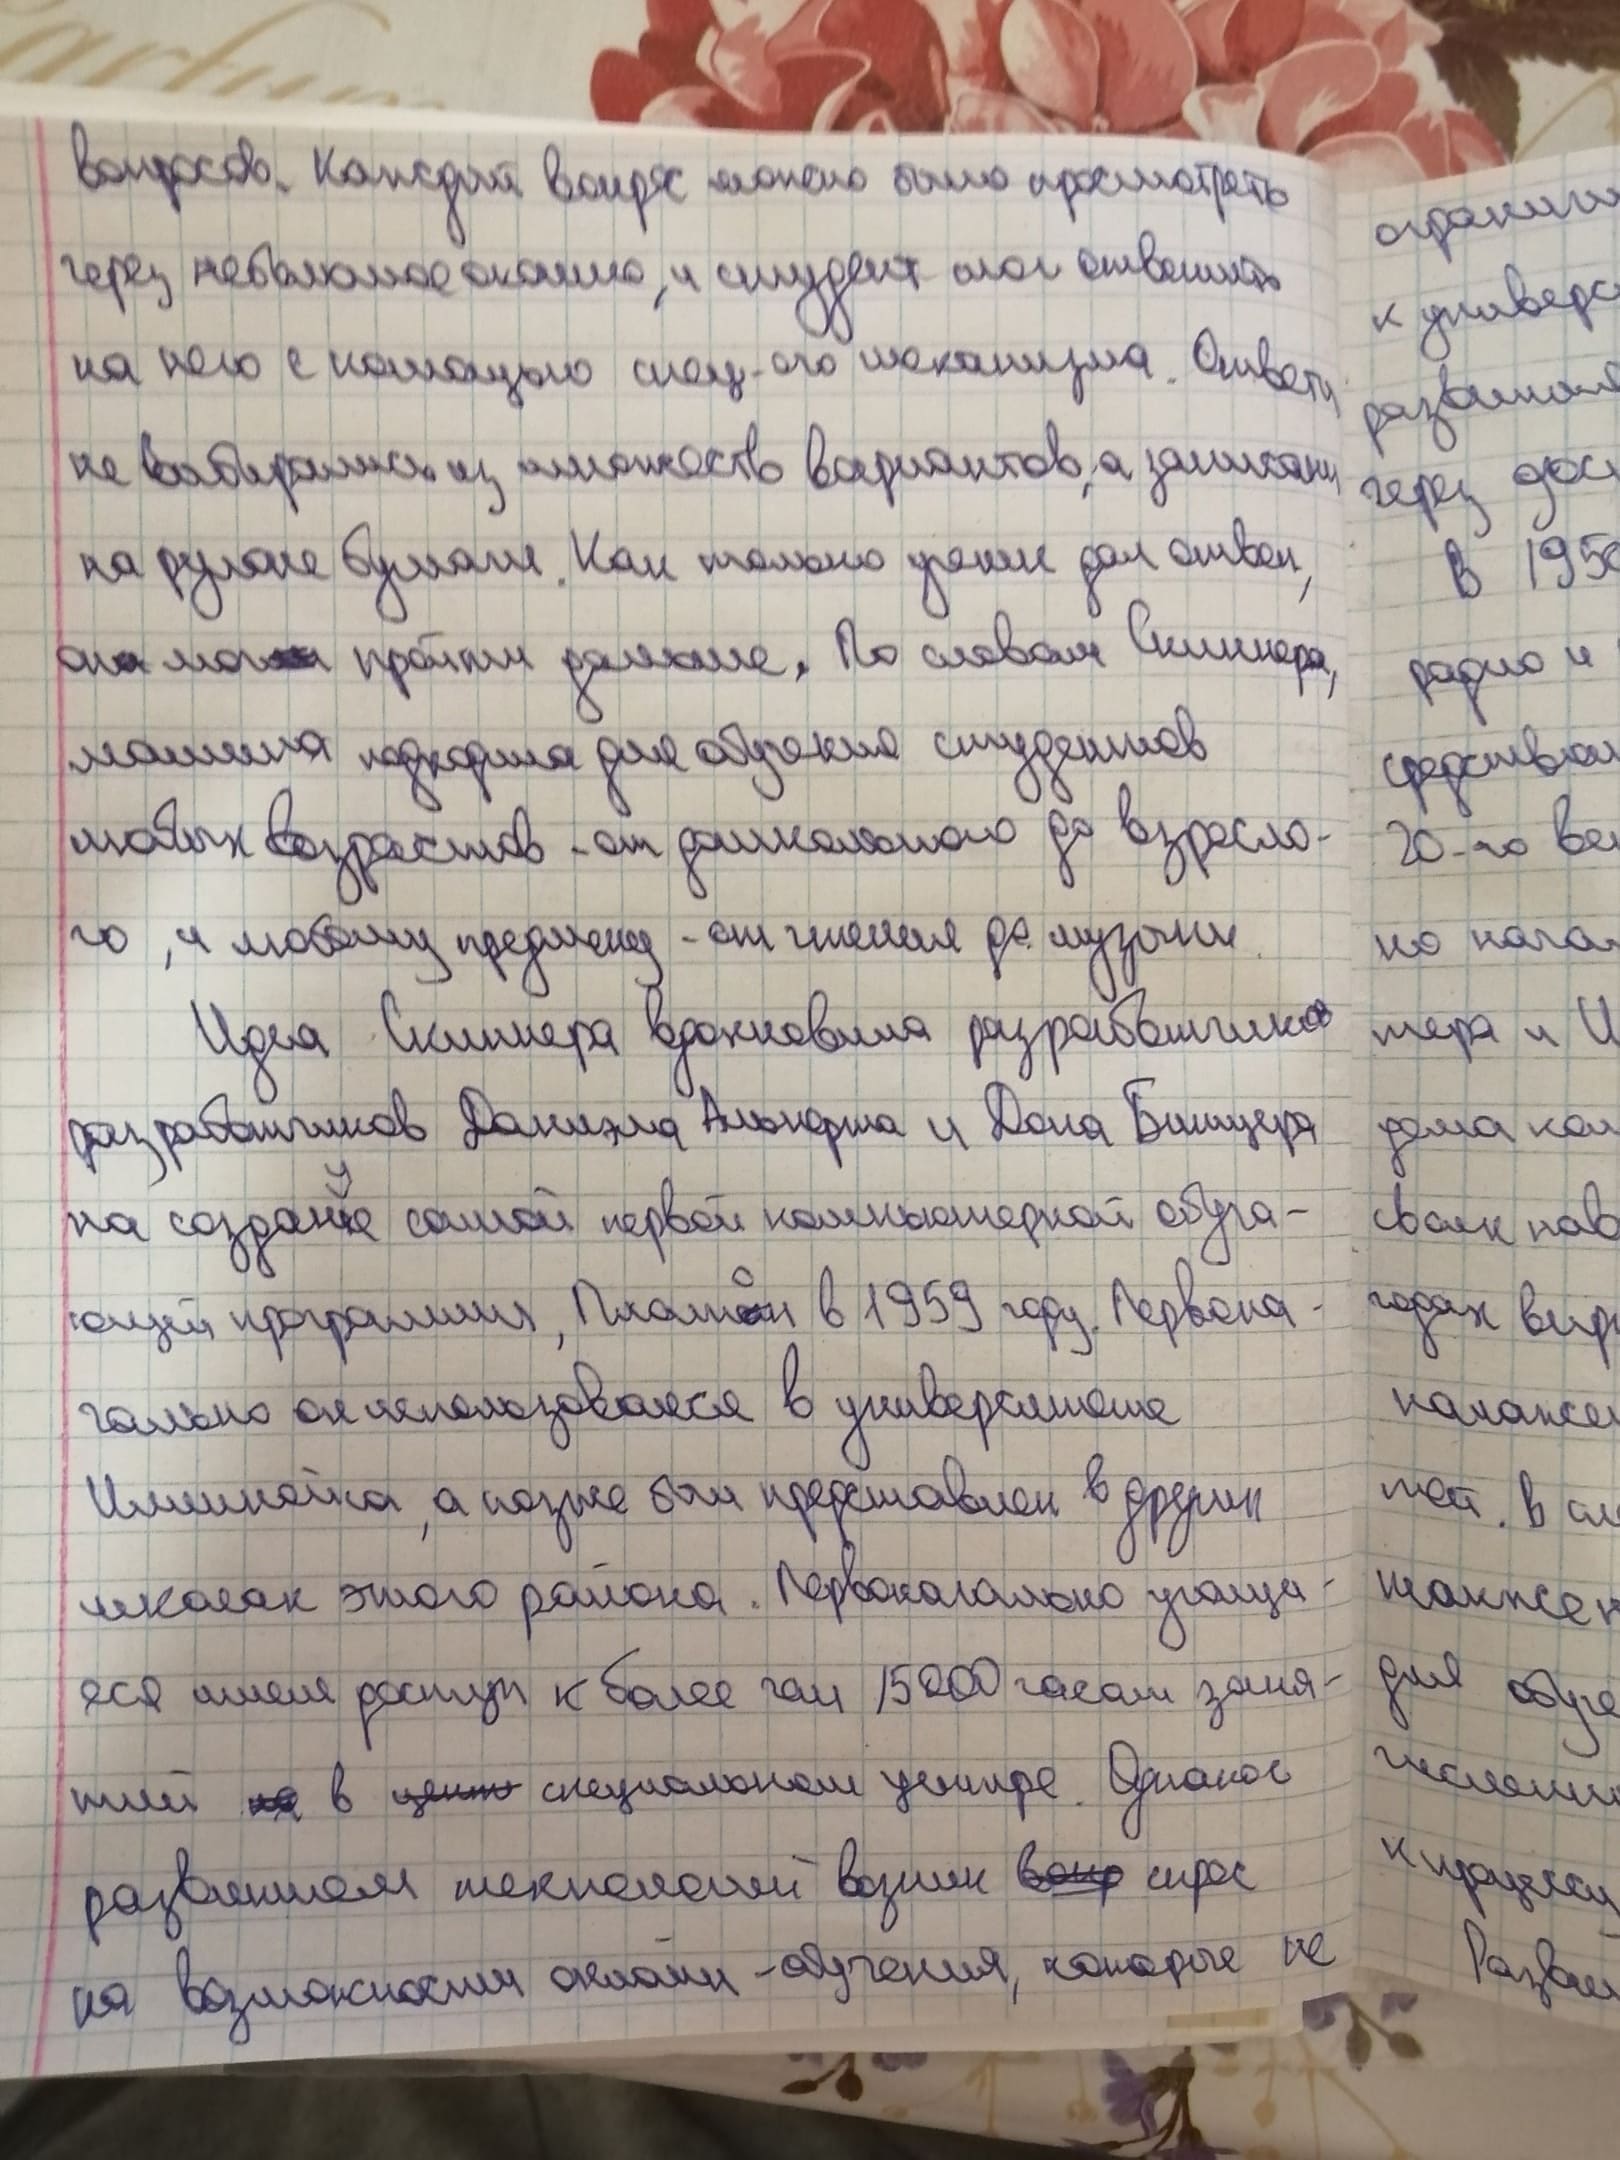 вопросов. Каждый вопрос можно было просмотреть
через небольшое окошко, и студент мог ответить
на него с помощью спец-ого механизма. Ответы
не выбирались из множеств вариантов, а записаны
на рулоне бумаги. Как только ученик дал ответ,
он мог пройти дальше. По словам Скиннера,
машина подходила для обучения студентов
любых возрастов - от дошкольного до взросло-
го, и любому предмету - от чтения до музыки
Идея Скиннера вдохновила разработчиков
разработчиков Даниэла Альперта и Дона Битцера
на создание самой первой компьютерной обуча-
ющей программы, Платон в 1959 году. Первона-
чально он использовался в университете
Иллинойса, а позже был представлен в других
школах этого района. Первоначально учащи-
еся имели доступ к более чем 15000 часам заня-
тий в специальном центре. Однако с
развитием технологий возник спрос
на возможности онлайн-обучения, которые не
к универс
через
в 195
радио и
средством
20-го ве
но нача
тера и И
дома ком
своих нав
годах вир
также
для обуче
к процессу
Разви